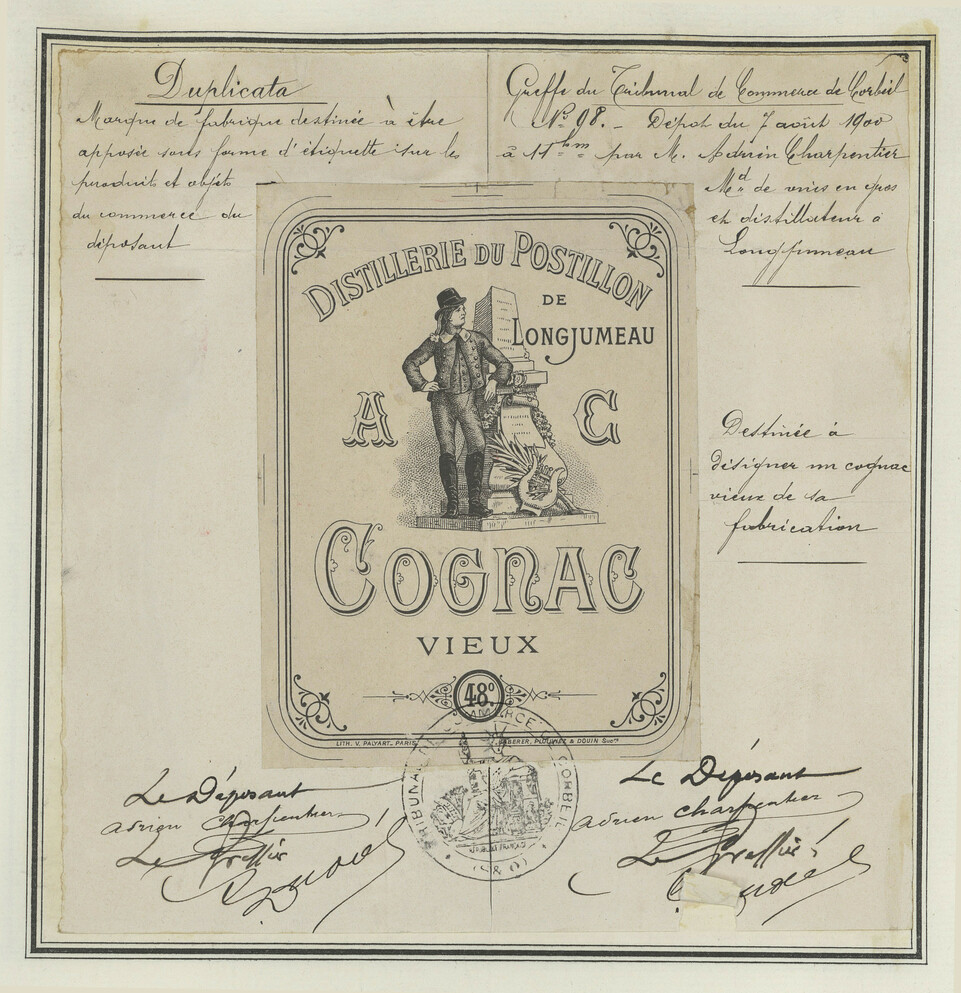 Duplicata
Marque de fabrique destinée à être
apposée sous forme d'étiquette sur les
produits et objets
du commerce du
déposant
Greffe du Tribunal de Commerce de Corbeil
N° 98. - Dépôt du 7 août 1900
à 11 h m par M. Adrien Charpentier
Md de vins en gros
et distillateur à
Longjumeau
DISTILLERIE DU POSTILLON
DE
LONGJUMEAU
A C
COGNAC
VIEUX
48°
LITH. V. PALYART, PARIS
& DOUIN Succrs
Destinée à
désigner un cognac
vieux de sa
fabrication
TRIBUNAL DE COMMERCE DE CORBEIL
(S & O)
Le Déposant
adrien charpentier
Le Greffier
Le Déposant
adrien charpentier
Le Greffier